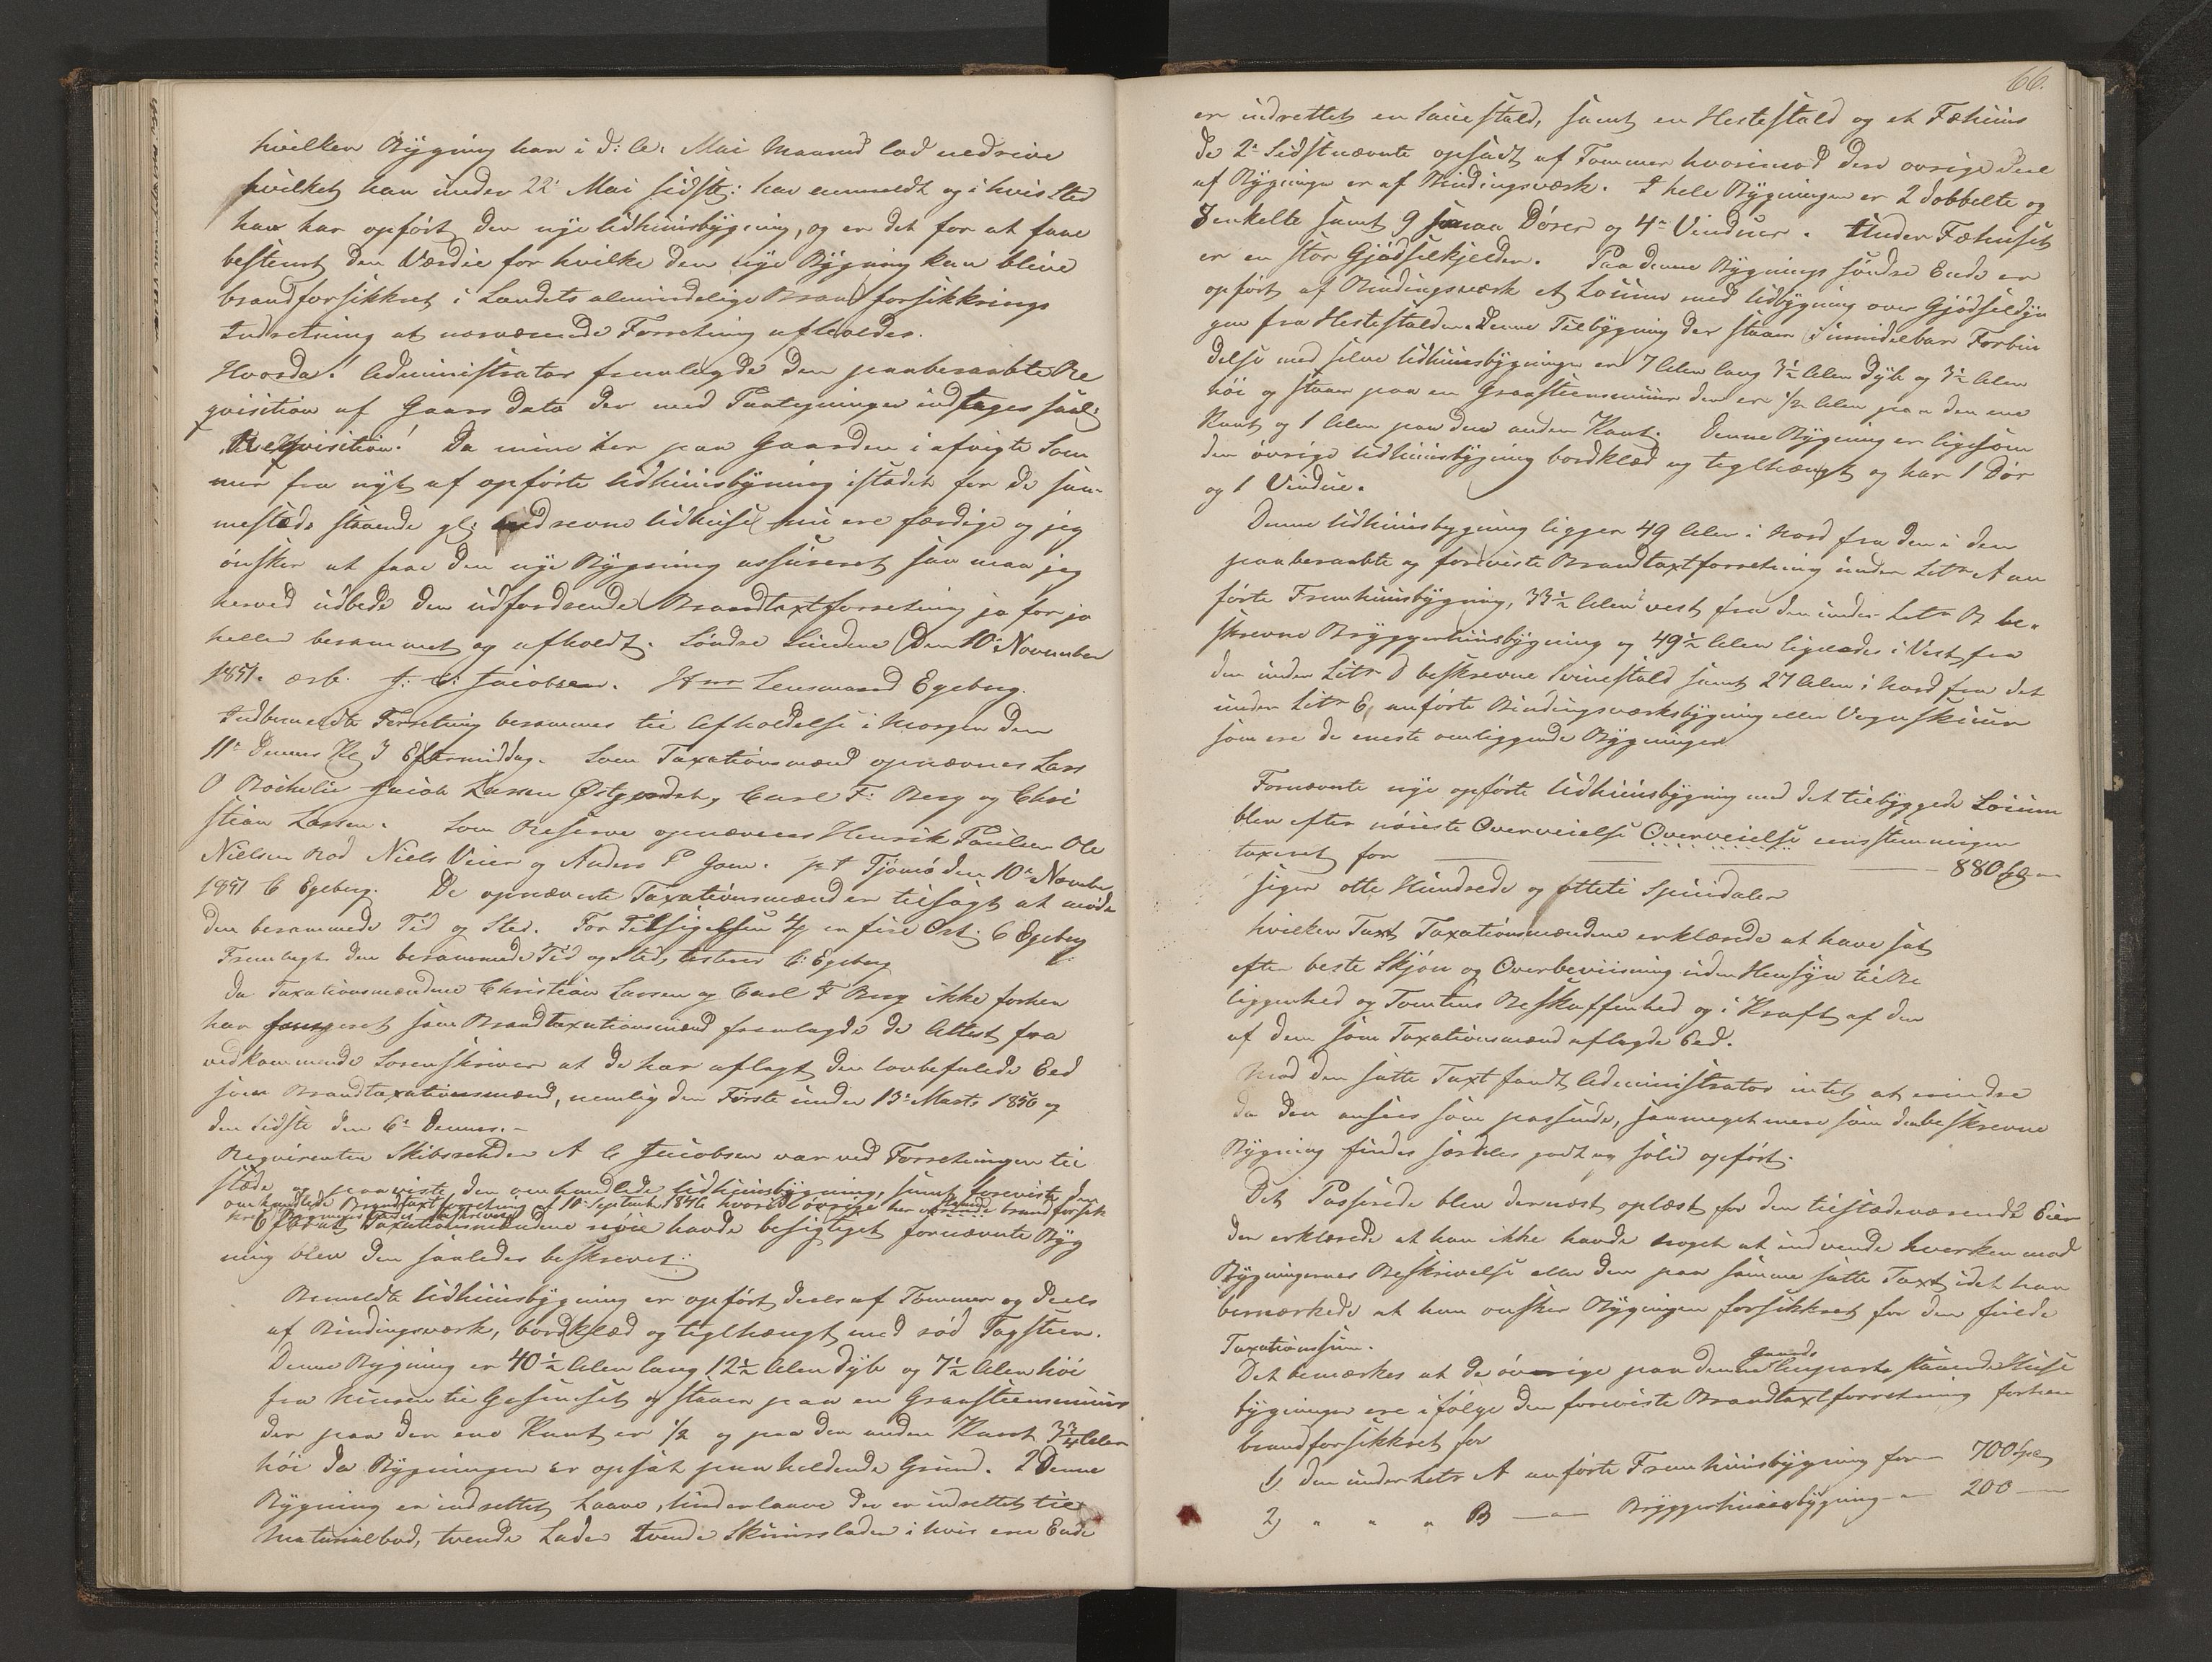 hvilken Bygning han i d: A. Mai Maaned lod nedrive
hvilket han under 22de Mai sidstl: har anmeldt og i hvis Sted
han har opført den nye Udhuusbygning, og er det for at faae
bestemt den Værdie for hvilke den nye Bygning kan blive
brandforsikkret i Landets almindelige Brandforsikkrings
Indretning at nærværende Forretning afholdes.
Hvorda! Administrator fremlagde den paaberaabte Re
qvisition af Gaars Dato der med Paategninger indtages saal:
Reqvisition! Da mine her paa Gaarden i afvigte Som
mer fra nyt af opførte Udhuusbygning istedet for de sam-
mesteds staaende gl: nedrevne Udhuse nu ere færdige og jeg
ønsker at faae den nye Bygning assureret saa maa jeg
herved udbede den udfordrende Brandtaxtforretning jo før jo
heller berammet og afholdt. Søndre Sundene den 10de November
1851. ærb. J: C: Jacobsen. Hrr Lensmand Egeberg.
Indbemeldte Forretning berammes til Afholdelse i Morgen den
11te Dennes Kl 3 Eftermiddag. Som Taxationsmænd opnævnes Lars
O Bøchelie Jacob Larsen Østgaardet, Carl F: Berg og Chri
stian Larsen. Som Reserve opnævnes Henrik Paulsen Ole
Nielsen Rød Niels Veier og Anders P Gom. pt Tjømø den 10de Novembr
1851 C Egeberg. De opnævnte Taxationsmænd er tilsagt at møde
den berammede Tid og Sted. For Tilsigelsen 4 en fire Ort. C Egeberg
Fremlagt den berammede Tid og Sted, testerer C: Egeberg
Da Taxationsmændene Christian Larsen og Carl F Berg ikke forhen
har fungeret som Brandtaxationsmænd fremlagde de Attest fra
vedkommende Sorenskriver at de har aflagt den lovbefalede Eed
som Brandtaxationsmænd, nemlig den Første under 13de Marts 1850 og
den Sidste den 6te Dennes.
Reqvirenten Skibsrehder A C Jacobsen var ved Forretningen til
stæde og paaviste den omhandlede Udhuusbygning, samt foreviste den
omhandlede Brandtaxtforretning af 10de September 1846 hvorved øvrige her værende brandforsik
krede Bygninger findes beskrevne
Efterat Taxationsmændene nøie havde besigtiget fornævnte Byg
ning blev den saaledes beskrevet:
Bemeldte Udhuusbygning er opført deels af Tømmer og deels
af Bindingsværk, bordklæd og teglhængt med rød Tagsteen.
Denne Bygning er 40½ Alen lang 12½ Alen dyb og 7½ Alen høi
fra Muren til Gesimset og staaer paa en Graasteensmuur
der paa den ene Kant er ½ og paa den anden Kant 3¾ Alen
høi da Bygningen er opsat paa heldende Grund. I Denne
Bygning er indrettet Laave, Underlaave der er indrettet til
Materialbod, tvende Lader tvende Skuurslader i hvis ene Ende
66.
er indrettet en Sauestald, samt en Hestestald og et Fæhuus
de 2de Sidstnævnte opsadt af Tømmer hvorimod den øvrige Deel
af Bygningen er af Bindingsværk. I hele Bygningen er 2 dobbelte og
8 enkelte samt 9 smaa Dører og 4re Vinduer. Under Fæhuset
er en stor Gjødselkjelder. Paa denne Bygnings søndre Ende er
opført af Bindingsværk et Locum med Udbygning over Gjødseldyn
gen fra Hestestalden. Denne Tilbygning der staaer i umidelbar Forbin
delse med selve Udhuusbygningen er 7 Alen lang 3½ Alen dyb og 3½ Alen
høi og staaer paa en Graasteensmuur der er ½ Alen paa den ene
Kant og 1 Alen paa den anden Kant. Denne Bygning er ligesom
den øvrige Udhuusbygning bordklæd og teglhængt og har 1 Dør
og 1 Vindue.
Denne Udhuusbygning ligger 49 Alen i Nord fra den i den
paaberaabte og foreviste Brandtaxtforretning under Litr A an
førte Fremhuusbygning, 33½ Alen i vest fra den under Litr B be-
skrevne Bryggerhuusbygning og 49½ Alen ligeledes i Vest fra
den under Litr D beskrevne Svinestald samt 27 Alen i Nord fra det
under Litr E anførte Bindingsværksbygning eller Vognskuur
som ere de eneste omliggende Bygninger.
Fornævnte nye opførte Udhuusbygning med det tilbyggede Locum
blev efter nøieste Overveielse Overveielse eensstemmigen
taxeret for — 880 Spd
siger otte Hundrede og otteti Speciedaler
hvilken Taxt Taxationsmændene erklærede at have sat
efter beste Skjøn og Overbeviisning uden Hensyn til Be
liggenhed og Tomtens Beskaffenhed og i Kraft af den
af dem som Taxationsmænd aflagde Eed.
Mod den satte Taxt fandt Administrator intet at erindre
da den ansees som passende, saameget mere som den beskrevne
Bygning findes særdeles godt og solid opført.
Det Passerede blev dernæst oplæst for den tilstædeværende Eier
der erklærede at han ikke havde noget at indvende hverken mod
Bygningernes Beskrivelse eller den paa samme satte Taxt idet han
bemærkede at han ønsker Bygningen forsikkret for den fulde
Taxationssum.
Det bemærkes at de øvrige paa denne Gaards staaende Huse
bygninger ere ifølge den foreviste Brandtaxtforretning forhen
brandforsikkret for
1) den under Litr A anførte Fremhuusbygning for — 700 Spd
2) " " " B — Bryggerhuusbygning — 200 —